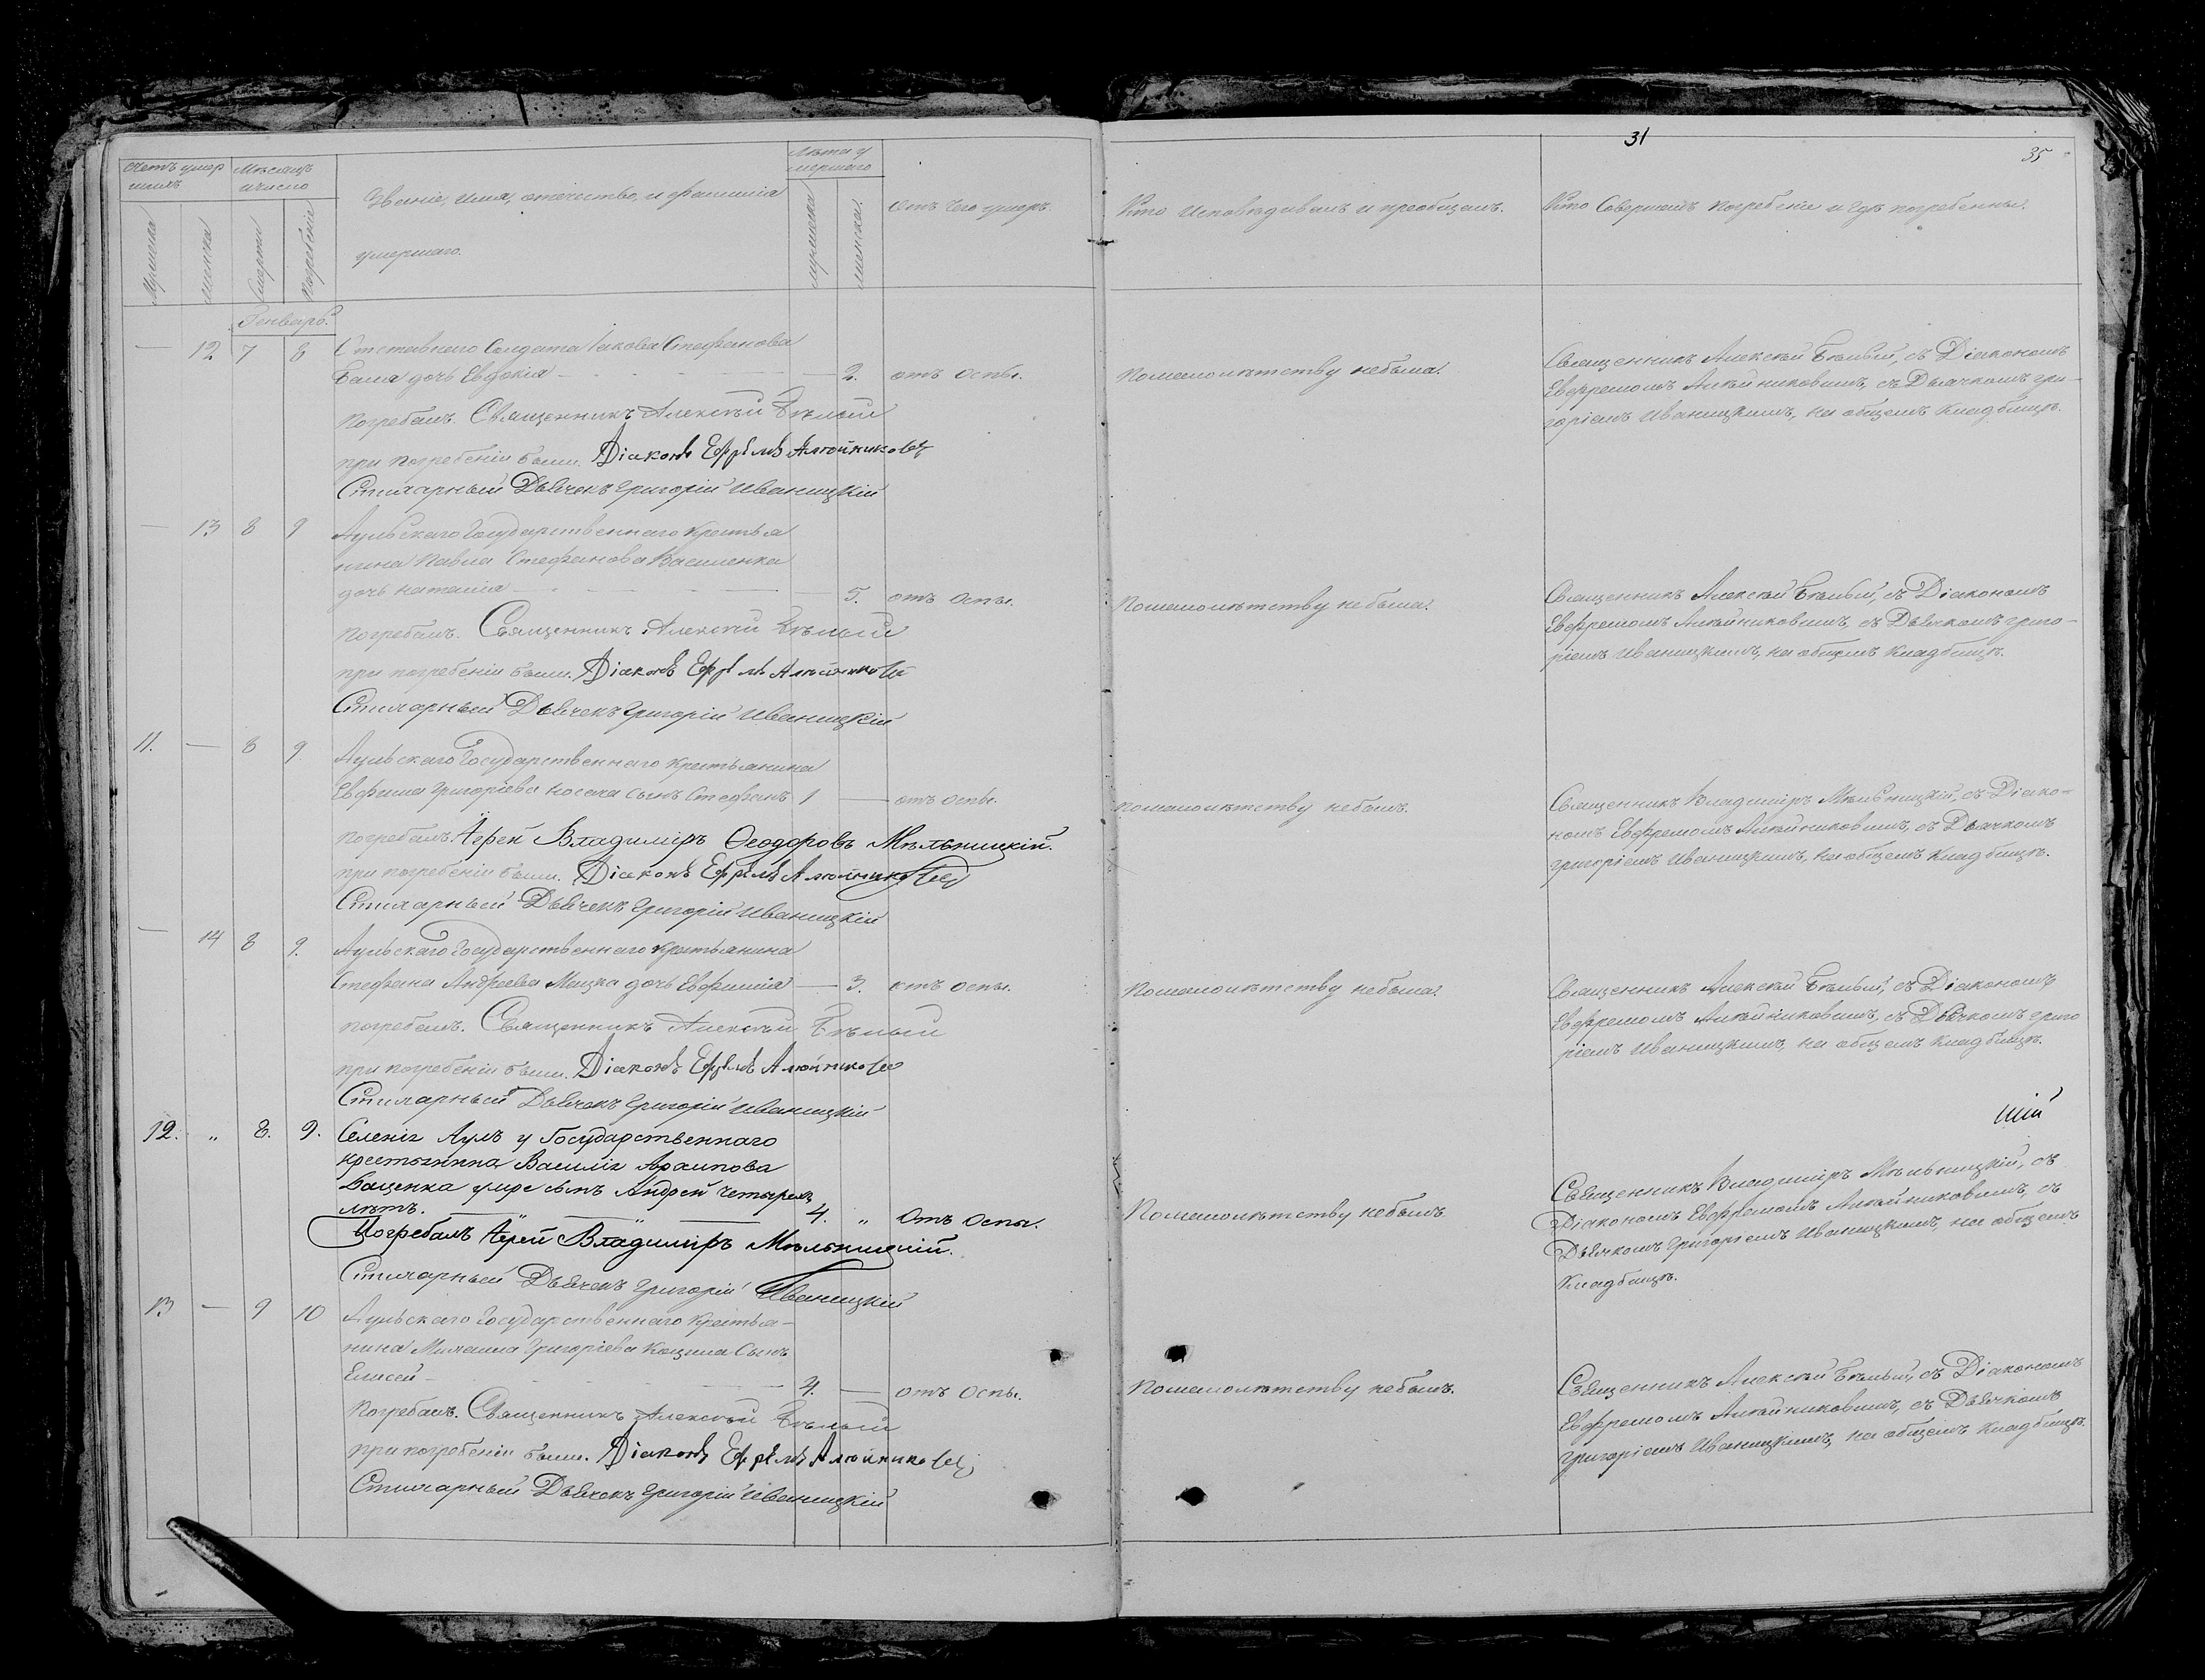 31
35
Счетъ умер
шихъ
Мѣсяцъ
и число
Званіе, имя, отечество, и фамилія
умершаго.
Лѣта у
мершаго
Отъ чего умеръ.
Кто Исповѣдывалъ и пріобщалъ.
Кто Совершалъ погребеніе и гдѣ погребенны.
Мужеска
женска
Смерти
Погребенія
мужеска
женска.
Генварь.
— 12 7 8 Отставнаго Солдата Іакова Стефанова
дочь Евдокія — 2. отъ оспы.
по малолѣтству не была.
Священникъ Алексѣй Бѣлый, съ Діакономъ
Евфремомъ Алѣйниковымъ, съ Дьячкомъ Гри-
горіемъ Иваницкимъ, на общемъ кладбищѣ.
погребалъ. Священникъ Алексѣй Бѣлый
при погребеніи были. Діаконъ Ефремъ Алѣйниковъ
Стихарный Дьячекъ Григорій Иваницкій
— 13 8 9 Аульскаго Государственнаго крестья
нина Павла Стефанова Василенка
дочь Наталія — 5. отъ оспы.
по малолѣтству не была.
Священникъ Алексѣй Бѣлый, съ Діакономъ
Евфремомъ Алѣйниковымъ, съ Дьячкомъ Григо-
ріемъ Иваницкимъ, на общемъ кладбищѣ.
погребалъ. Священникъ Алексѣй Бѣлый
при погребеніи были. Діаконъ Ефремъ Алѣйниковъ
Стихарный Дьячекъ Григорій Иваницкій
11. — 8 9 Аульскаго Государственнаго крестьянина
Евфима Григоріева Носача сынъ Стефанъ 1 — отъ оспы.
по малолѣтству не былъ.
Священникъ Владиміръ Мѣльницкій, съ Діако-
номъ Евфремомъ Алѣйниковымъ, съ Дьячкомъ
Григоріемъ Иваницкимъ, на общемъ кладбищѣ.
погребалъ Іерей Владиміръ Ѳеодоровъ Мѣльницкій.
при погребеніи были. Діаконъ Ефремъ Алѣйниковъ
Стихарный Дьячекъ Григорій Иваницкій
— 14 8 9. Аульскаго Государственнаго крестьянина
Стефана Андреева Мацка дочь Евфимія — 3. отъ оспы.
по малолѣтству не была.
Священникъ Алексѣй Бѣлый, съ Діакономъ
Евфремомъ Алѣйниковымъ, съ Дьячкомъ Григо
ріемъ Иваницкимъ, на общемъ кладбищѣ.
погребалъ. Священникъ Алексѣй Бѣлый
при погребеніи были. Діаконъ Ефремъ Алѣйниковъ
Стихарный Дьячекъ Григорій Иваницкій
12. „ 8. 9. Селенія Аулъ у Государственнаго
крестьянина Василія Архипова
умре сынъ Андрей четырехъ
лѣтъ. 4. „ Отъ Оспы.
По малолѣтству не былъ
Священникъ Владиміръ Мѣльницкій, съ
Діакономъ Евфремомъ Алѣйниковымъ, съ
Дьячкомъ Григоріемъ Иваницкимъ, на общемъ
Кладбищѣ.
Погребалъ Іерей Владиміръ Мѣльницкій.
Стихарный Дьячекъ Григорій Иваницкій
13 — 9 10 Аульскаго Государственнаго крестья-
нина Григоріева Сынъ
Елисей — 4. — отъ оспы.
По малолѣтству не былъ.
Священникъ Алексѣй Бѣлый, съ Діакономъ
Евфремомъ Алѣйниковымъ, съ Дьячкомъ
Григоріемъ Иваницкимъ, на общемъ кладбищѣ.
Погребалъ. Священникъ Алексѣй Бѣлый
при погребеніи были. Діаконъ Ефремъ Алѣйниковъ
Стихарный Дьячекъ Григорій Иваницкій